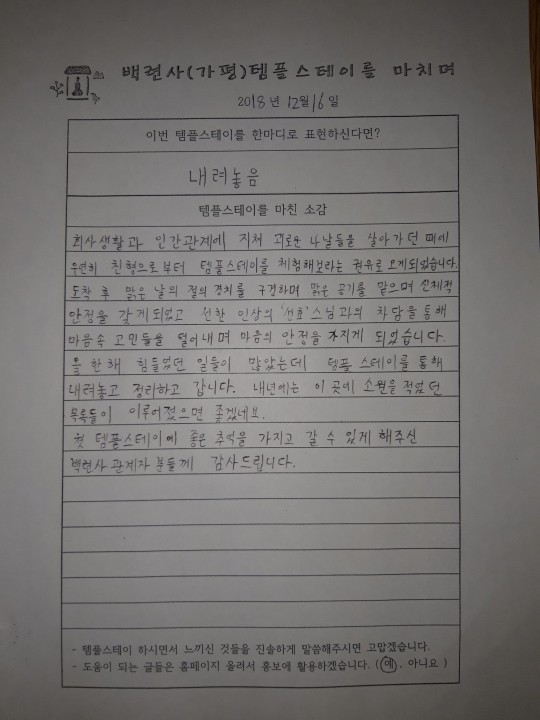 백련사(가평)템플스테이를 마치며
2018년 12월 16일
이번 템플스테이를 한마디로 표현하신다면?
내려놓음
템플스테이를 마친 소감
회사생활과 인간관계에 지쳐 괴로운 나날들을 살아가던 때에
우연히 친형으로부터 템플스테이를 체험해보라는 권유로 오게되었습니다.
도착 후 맑은 날의 절의 경치를 구경하며 맑은 공기를 맡으며 신체적
안정을 갖게되었고 선한 인상의 '선효'스님과의 차담을 통해
마음속 고민들을 덜어내며 마음의 안정을 가지게 되었습니다.
올 한해 힘들었던 일들이 많았는데 템플 스테이를 통해
내려놓고 정리하고 갑니다. 내년에는 이 곳에 소원을 적었던
목록들이 이루어졌으면 좋겠네요.
첫 템플스테이에 좋은 추억을 가지고 갈 수 있게 해주신
백련사 관계자 분들께 감사드립니다.
- 템플스테이 하시면서 느끼신 것들을 진솔하게 말씀해주시면 고맙겠습니다.
- 도움이 되는 글들은 홈페이지 올려서 홍보에 활용하겠습니다. (예, 아니요)